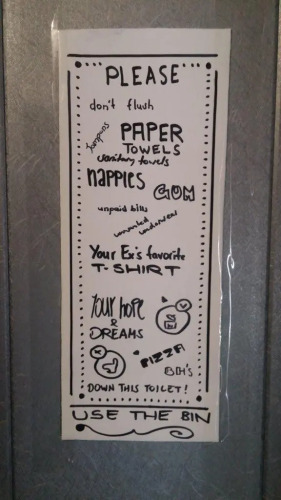 PLEASE
don't flush
Tampons
PAPER
TOWELS
sanitary towels
nappies
GUM
unpaid bills
unwanted underwear
Your Ex's favorite
T-SHIRT
Your hope
&
DREAMS
PIZZA
DOWN THIS TOILET!
USE THE BIN